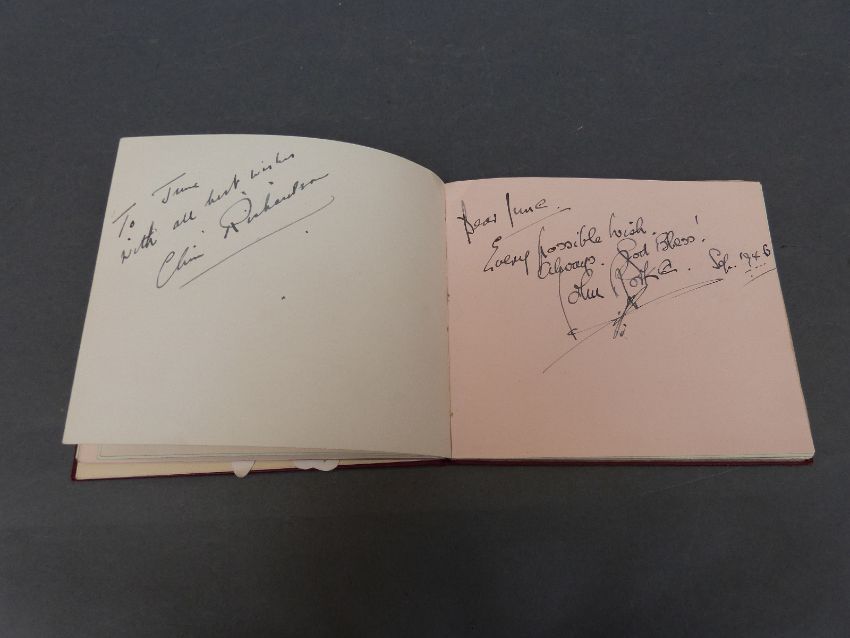 To June
with all best wishes
Richardson
Dear June.
Every possible wish.
Always. God Bless!
John Sep. 1946